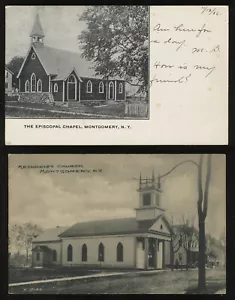 Am here for
a day
M. D.
How is my
friend?
THE EPISCOPAL CHAPEL, MONTGOMERY, N. Y.
METHODIST CHURCH
MONTGOMERY, N.Y.